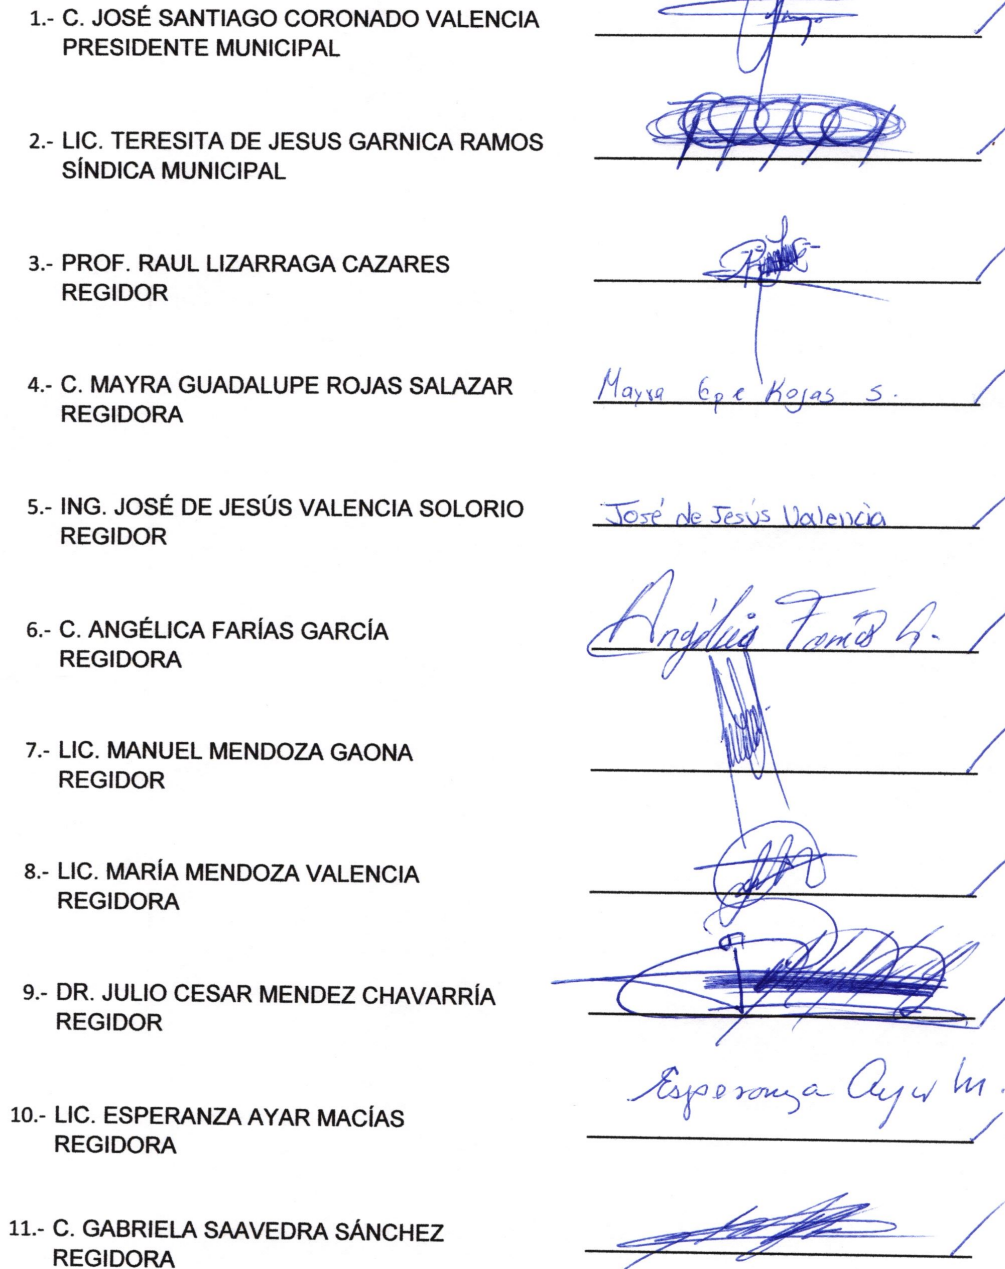 1.- C. JOSÉ SANTIAGO CORONADO VALENCIA
PRESIDENTE MUNICIPAL
2.- LIC. TERESITA DE JESUS GARNICA RAMOS
SÍNDICA MUNICIPAL
3.- PROF. RAUL LIZARRAGA CAZARES
REGIDOR
4.- C. MAYRA GUADALUPE ROJAS SALAZAR
REGIDORA
Mayra Gpe Rojas S.
5.- ING. JOSÉ DE JESÚS VALENCIA SOLORIO
REGIDOR
José de Jesús Valencia
6.- C. ANGÉLICA FARÍAS GARCÍA
REGIDORA
Angélica Farías G.
7.- LIC. MANUEL MENDOZA GAONA
REGIDOR
8.- LIC. MARÍA MENDOZA VALENCIA
REGIDORA
9.- DR. JULIO CESAR MENDEZ CHAVARRÍA
REGIDOR
10.- LIC. ESPERANZA AYAR MACÍAS
REGIDORA
Esperanza Ayar M.
11.- C. GABRIELA SAAVEDRA SÁNCHEZ
REGIDORA